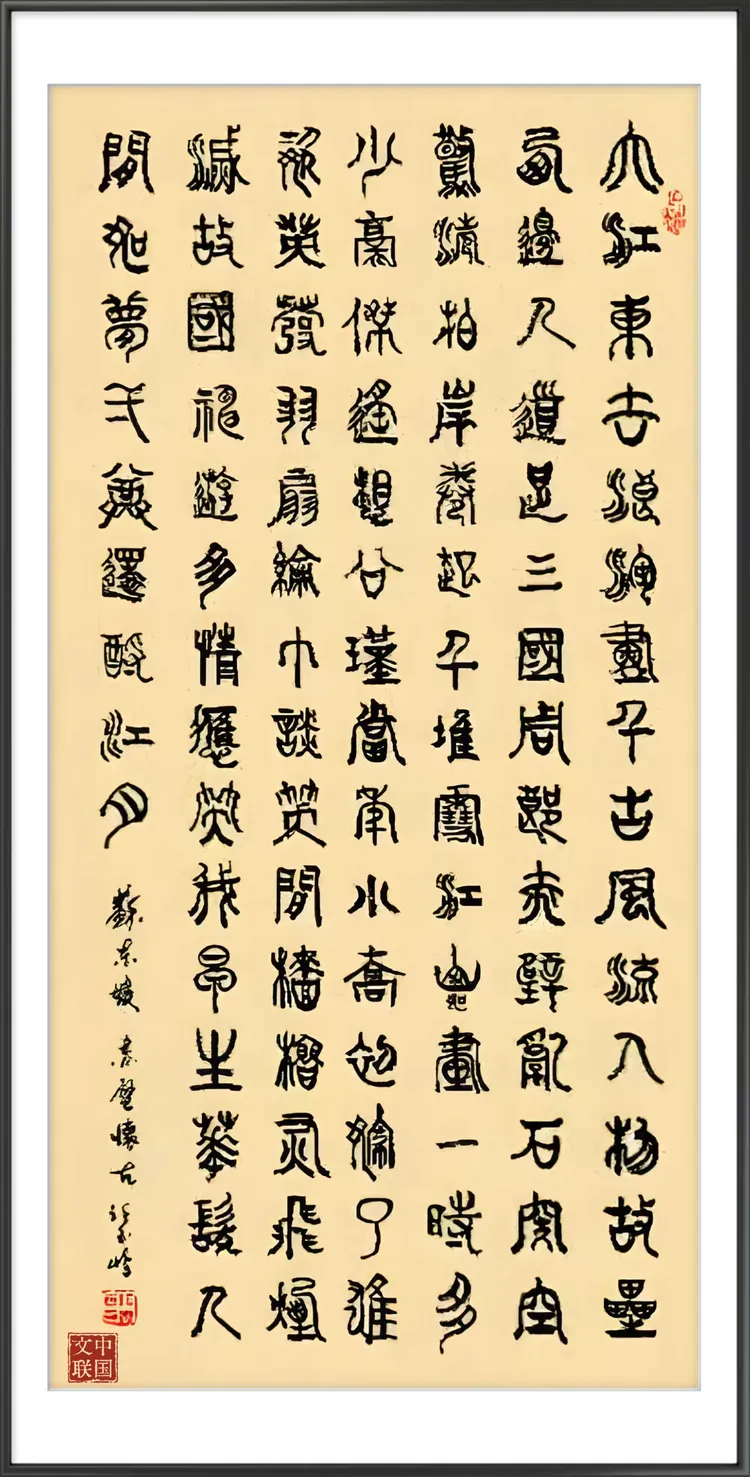 大江東去浪淘盡千古風流人物故壘
西邊人道是三國周郎赤壁亂石穿空
驚濤拍岸卷起千堆雪江山如畫一時多
少豪傑遙想公瑾當年小喬初嫁了雄
姿英發羽扇綸巾談笑間檣櫓灰飛煙
滅故國神遊多情應笑我早生華髮人
間如夢弌尊還酹江月
蘇東坡 赤壁懷古
中国文联